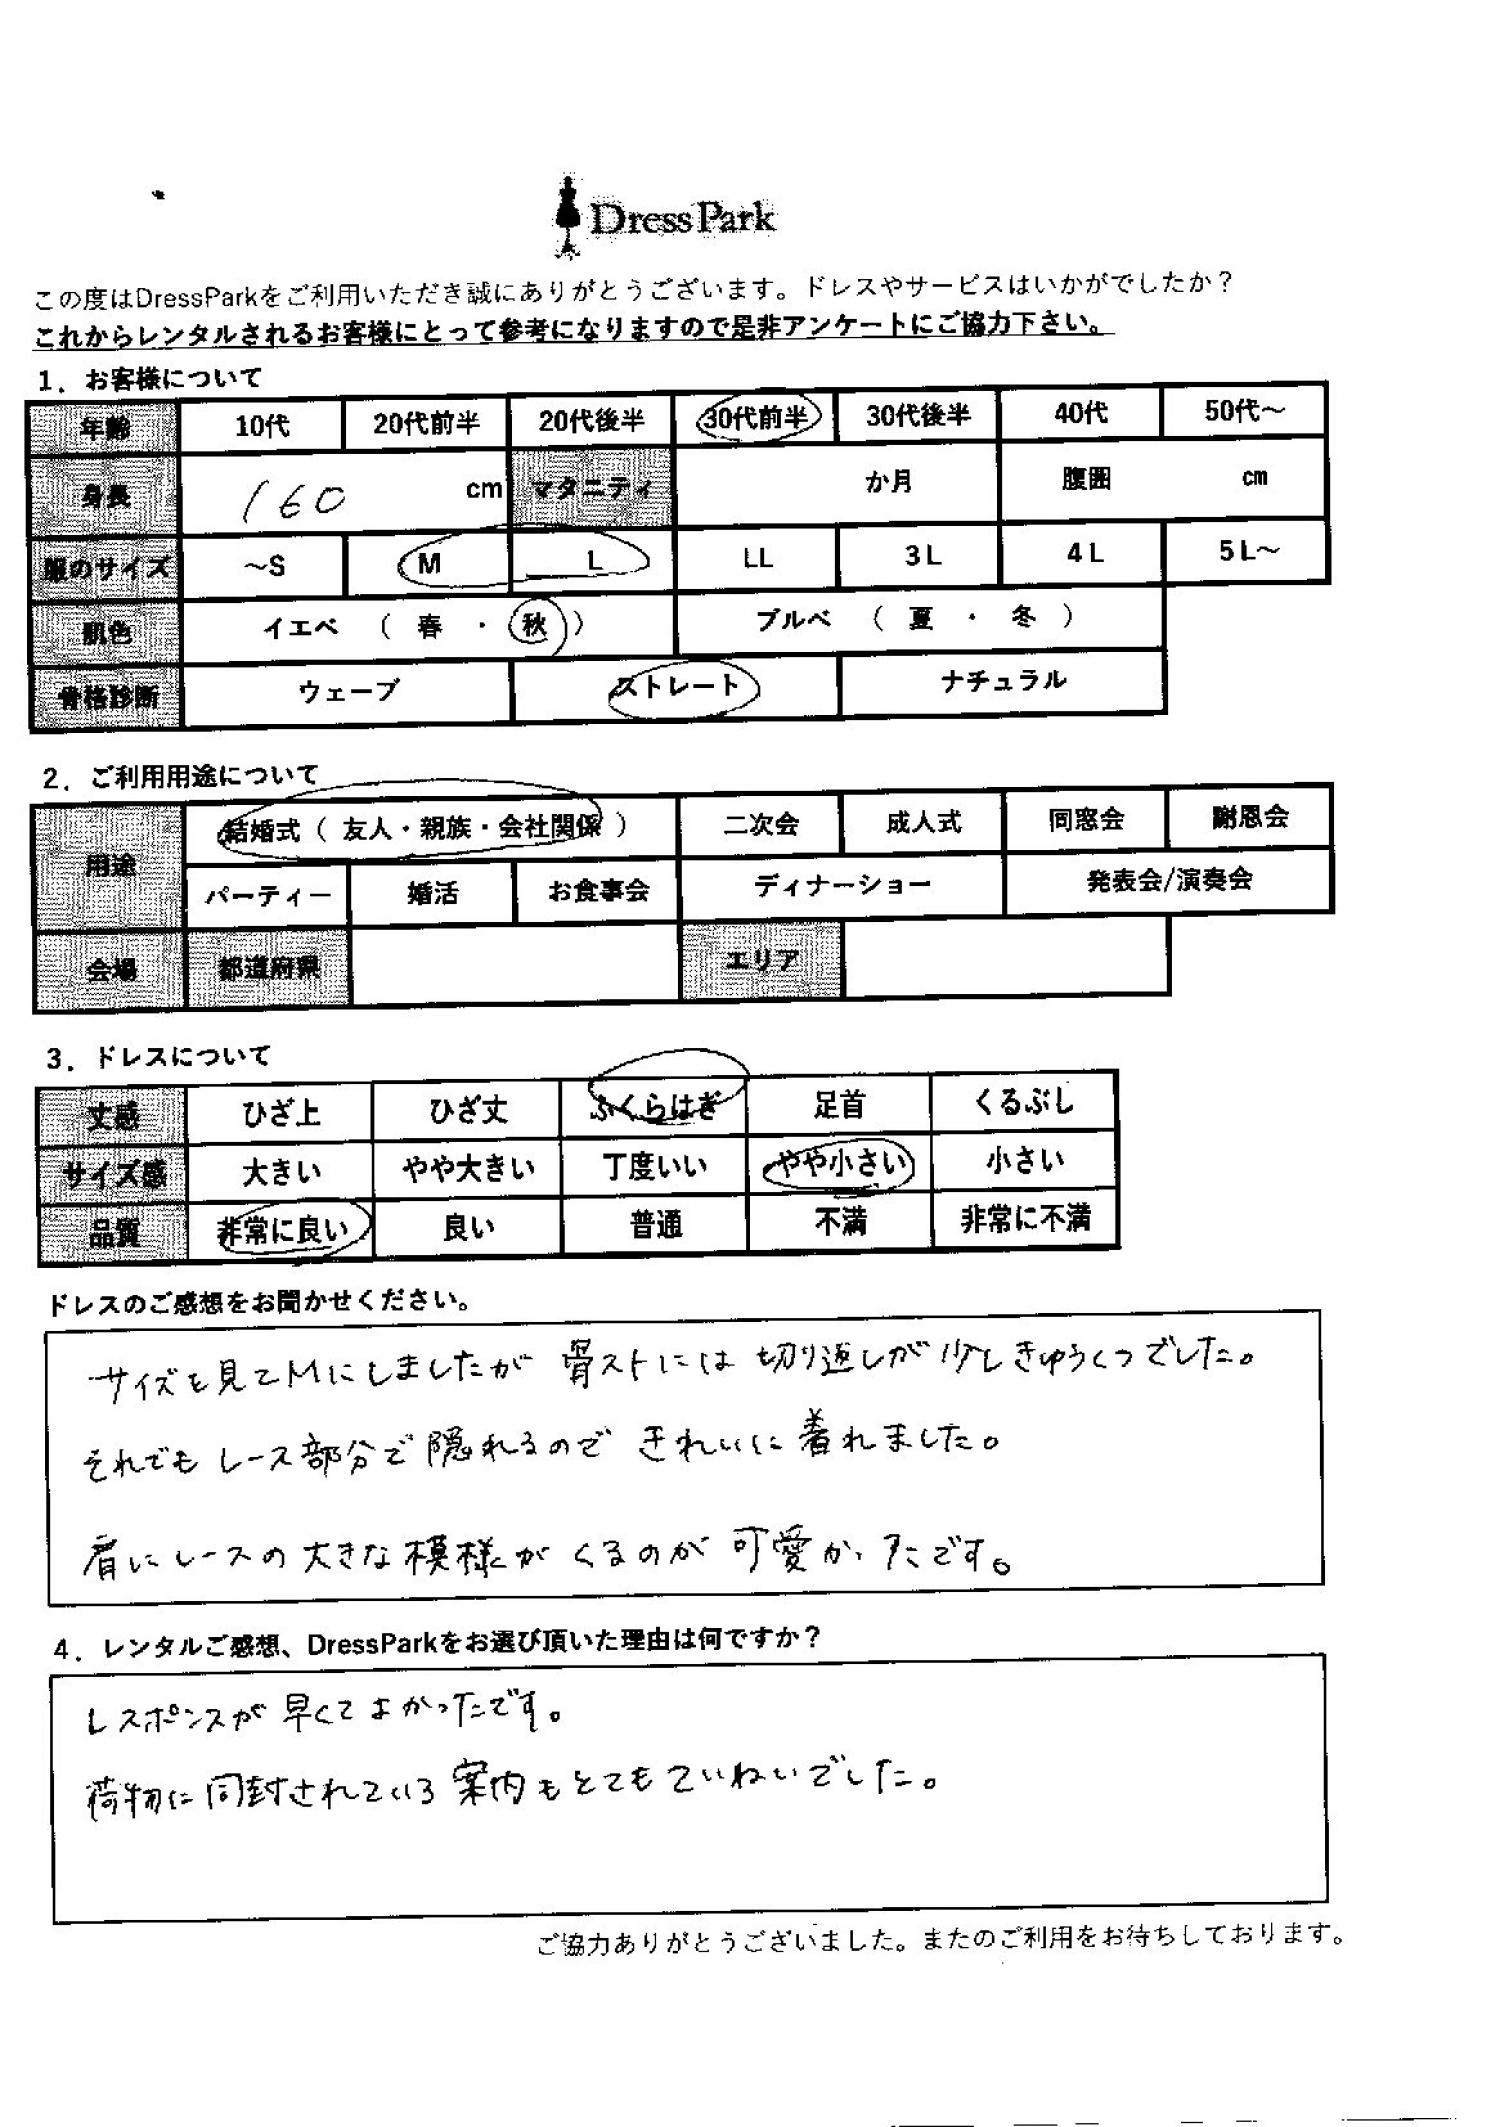 DressPark
この度はDressParkをご利用いただき誠にありがとうございます。ドレスやサービスはいかがでしたか？
これからレンタルされるお客様にとって参考になりますので是非アンケートにご協力下さい。
1．お客様について
年齢 10代 20代前半 20代後半 30代前半 30代後半 40代 50代～
身長 160 cm マタニティ か月 腹囲 cm
服のサイズ ～S M L LL 3L 4L 5L～
肌色 イエベ （ 春 ・ 秋 ） ブルベ （ 夏 ・ 冬 ）
骨格診断 ウェーブ ストレート ナチュラル
2．ご利用用途について
用途 結婚式（ 友人・親族・会社関係 ） 二次会 成人式 同窓会 謝恩会
パーティー 婚活 お食事会 ディナーショー 発表会/演奏会
会場 都道府県 エリア
3．ドレスについて
丈感 ひざ上 ひざ丈 ふくらはぎ 足首 くるぶし
サイズ感 大きい やや大きい 丁度いい やや小さい 小さい
品質 非常に良い 良い 普通 不満 非常に不満
ドレスのご感想をお聞かせください。
サイズを見てMにしましたが 骨ストには 切り返しが 少しきゅうくつでした。
それでもレース部分で隠れるので きれいに着れました。
肩にレースの大きな模様がくるのが可愛かったです。
4．レンタルご感想、DressParkをお選び頂いた理由は何ですか？
レスポンスが早くてよかったです。
荷物に同封されている案内もとてもていねいでした。
ご協力ありがとうございました。またのご利用をお待ちしております。